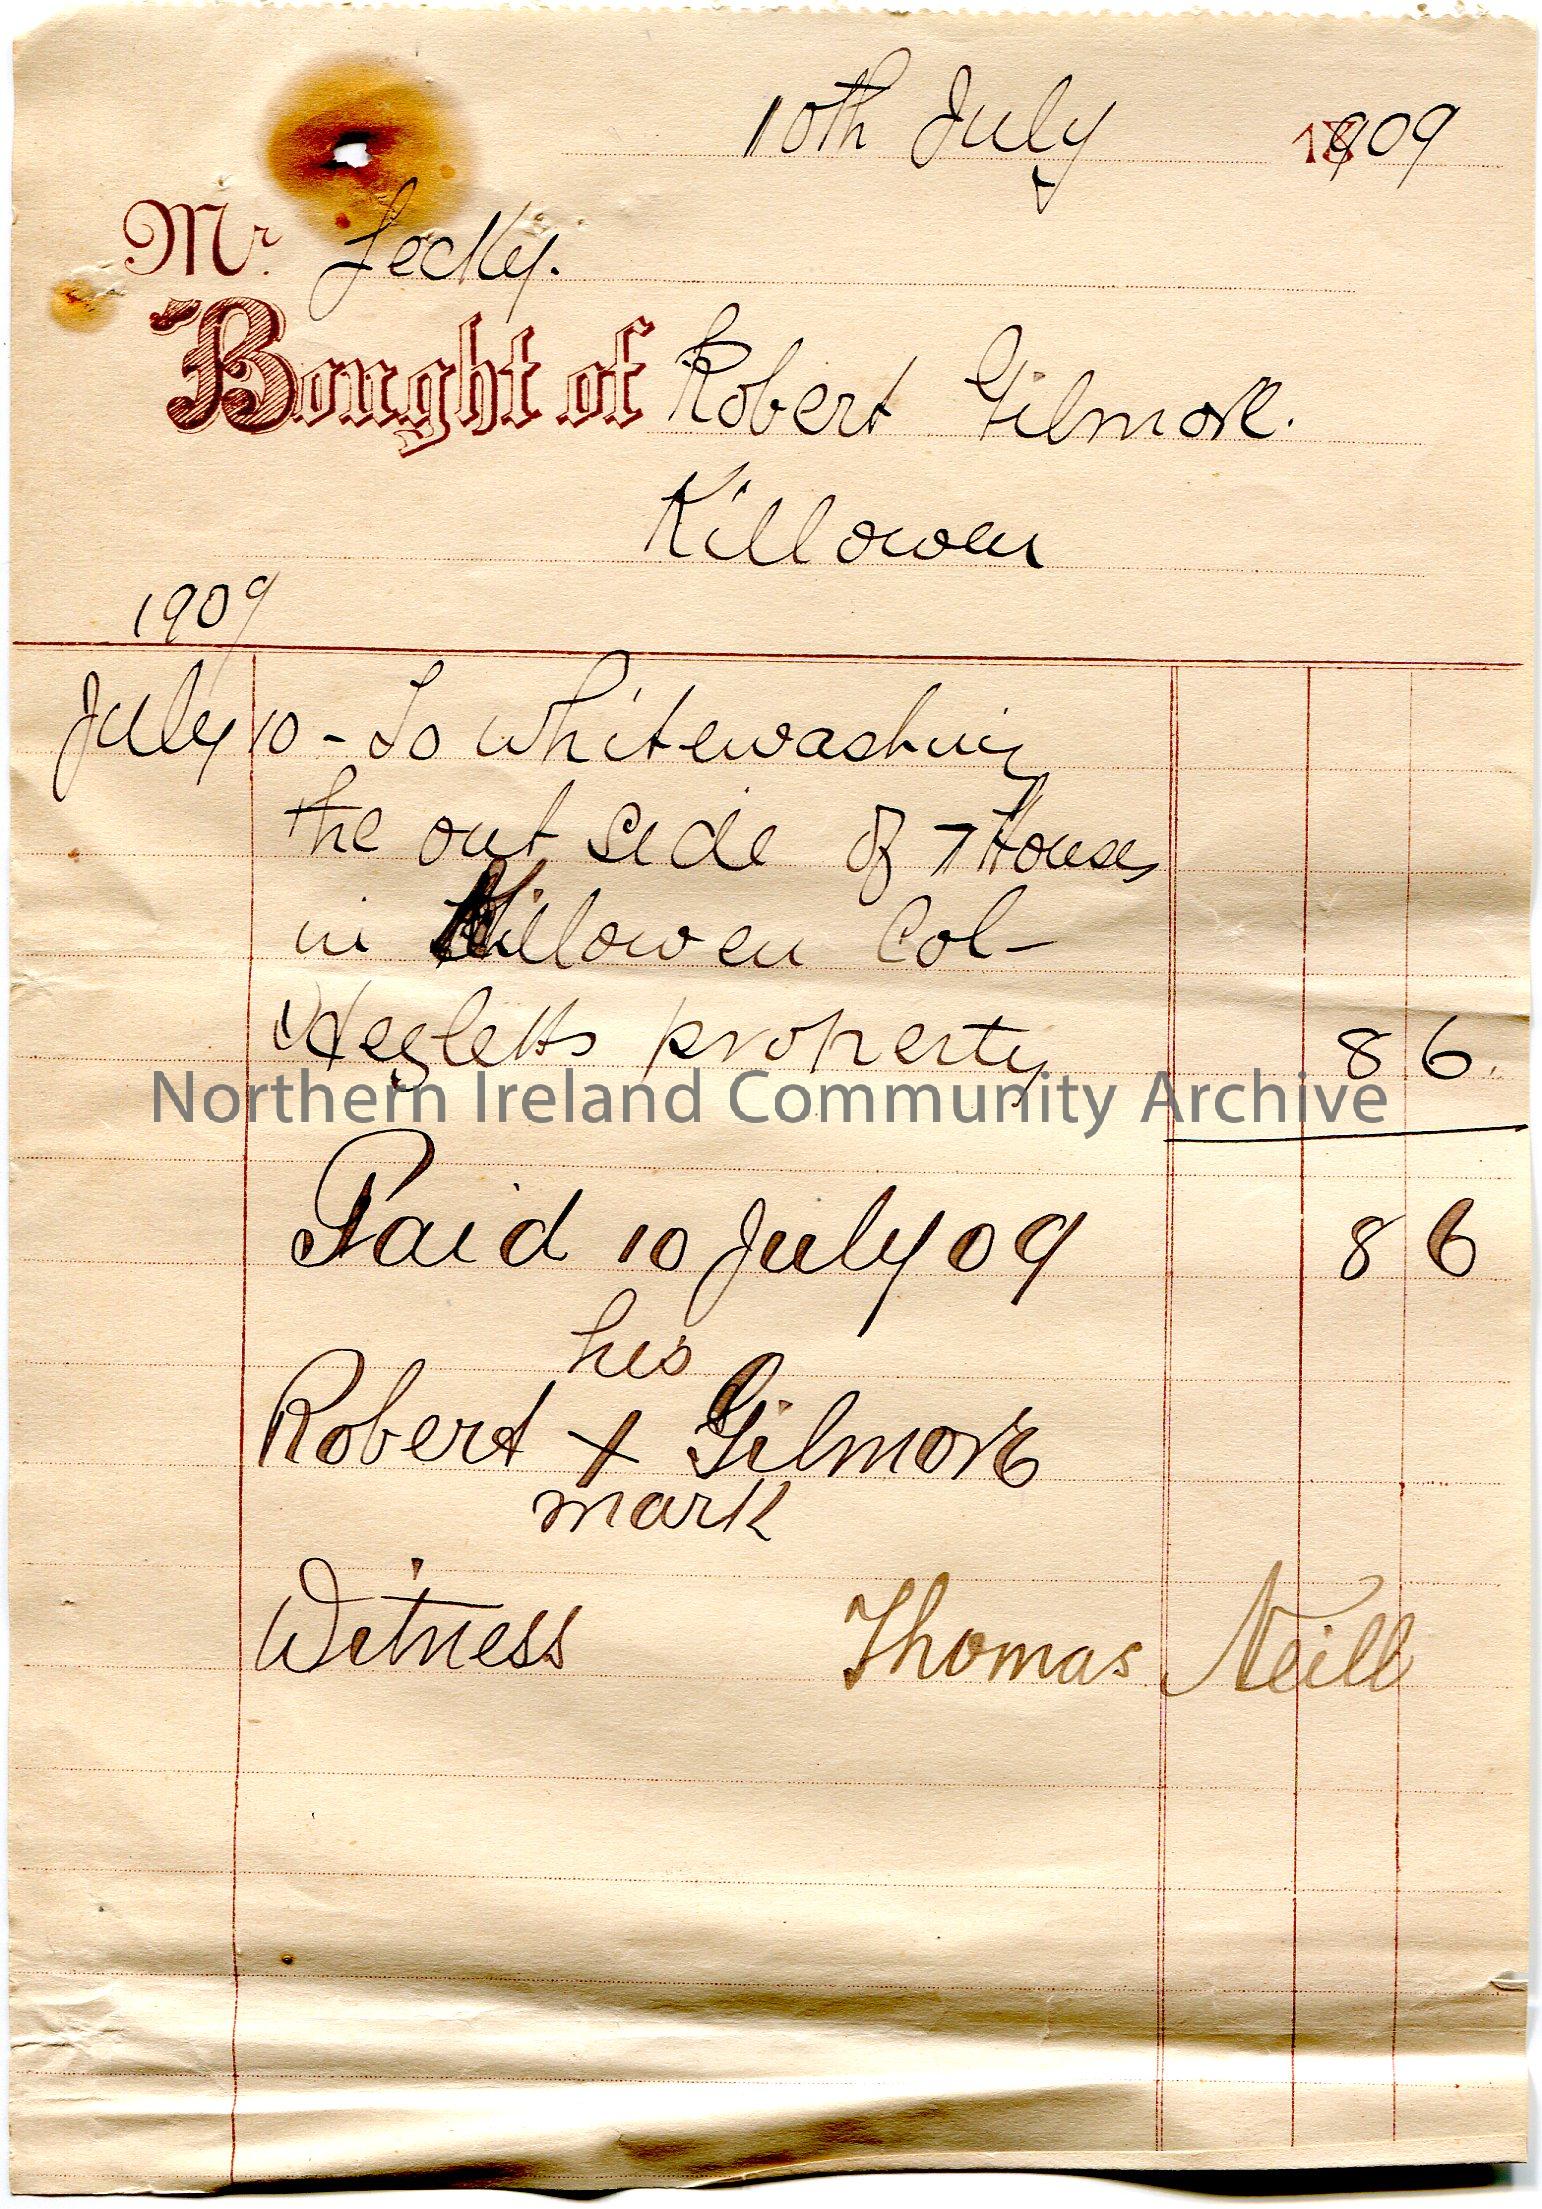 10th July 1909
Mr. Lecky.
Bought of Robert Gilmore.
Killowen
1909
July 10 - To Whitewashing
the out side of 7 Houses
in Killowen Col-
property 8 6.
Northern Ireland Community Archive
Paid 10 July 09 8 6
his
Robert + Gilmore
mark
Witness Thomas Neill